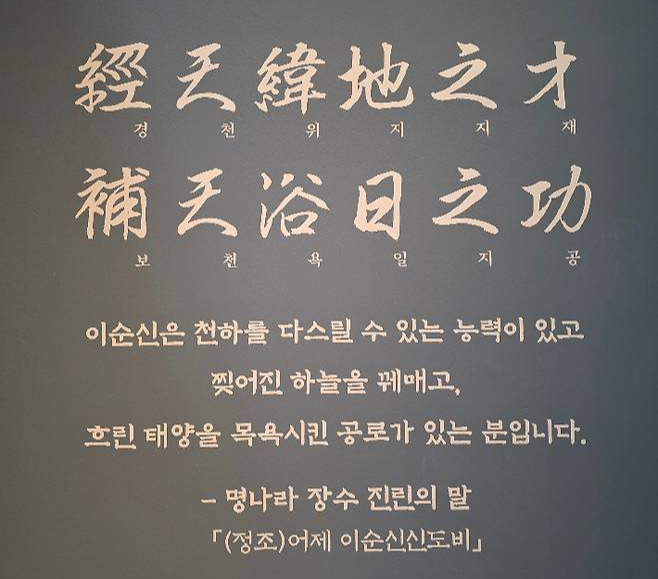 經天緯地之才
경천위지지재
補天浴日之功
보천욕일지공
이순신은 천하를 다스릴 수 있는 능력이 있고
찢어진 하늘을 꿰매고,
흐린 태양을 목욕시킨 공로가 있는 분입니다.
- 명나라 장수 진린의 말
「(정조)어제 이순신신도비」